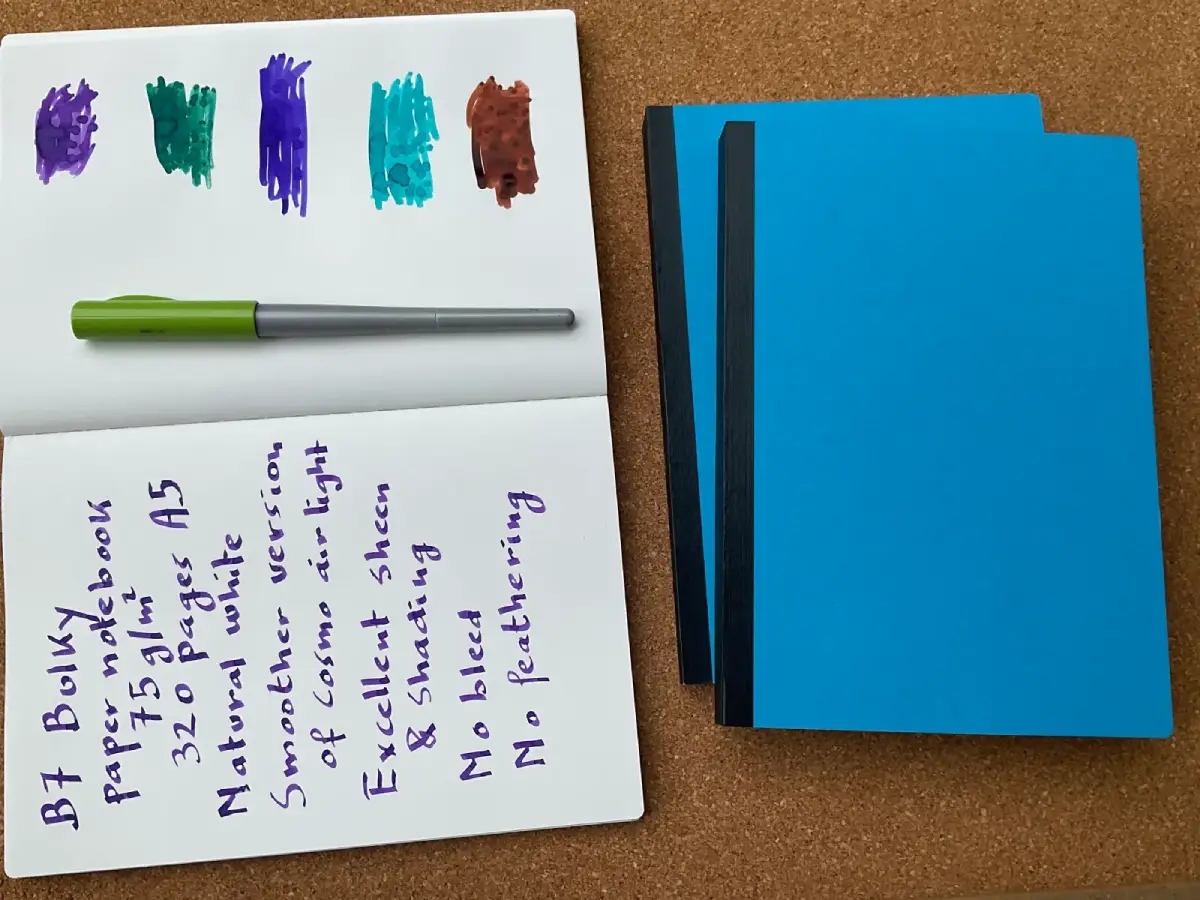 B7 Bulky
paper notebook
75 g/m²
320 pages A5
Natural white
Smoother version
of Cosmo air light
Excellent sheen
& shading
No bleed
No feathering